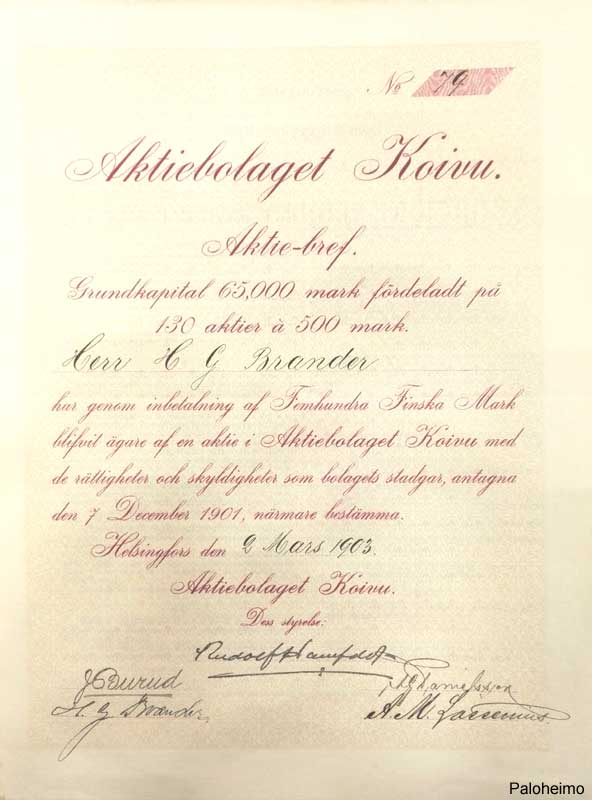 No 79
Aktiebolaget Koivu.
Aktie-bref.
Grundkapital 65,000 mark fördeladt på
130 aktier à 500 mark.
Herr H G Brander
har genom inbetalning af Femhundra Finska Mark
blifvit ägare af en aktie i Aktiebolaget Koivu med
de rättigheter och skyldigheter som bolagets stadgar, antagna
den 7 December 1901, närmare bestämma.
Helsingfors den 2 Mars 1903.
Aktiebolaget Koivu.
Dess styrelse:
Rudolf
H. G Brander
A. M. Lassenius
Paloheimo